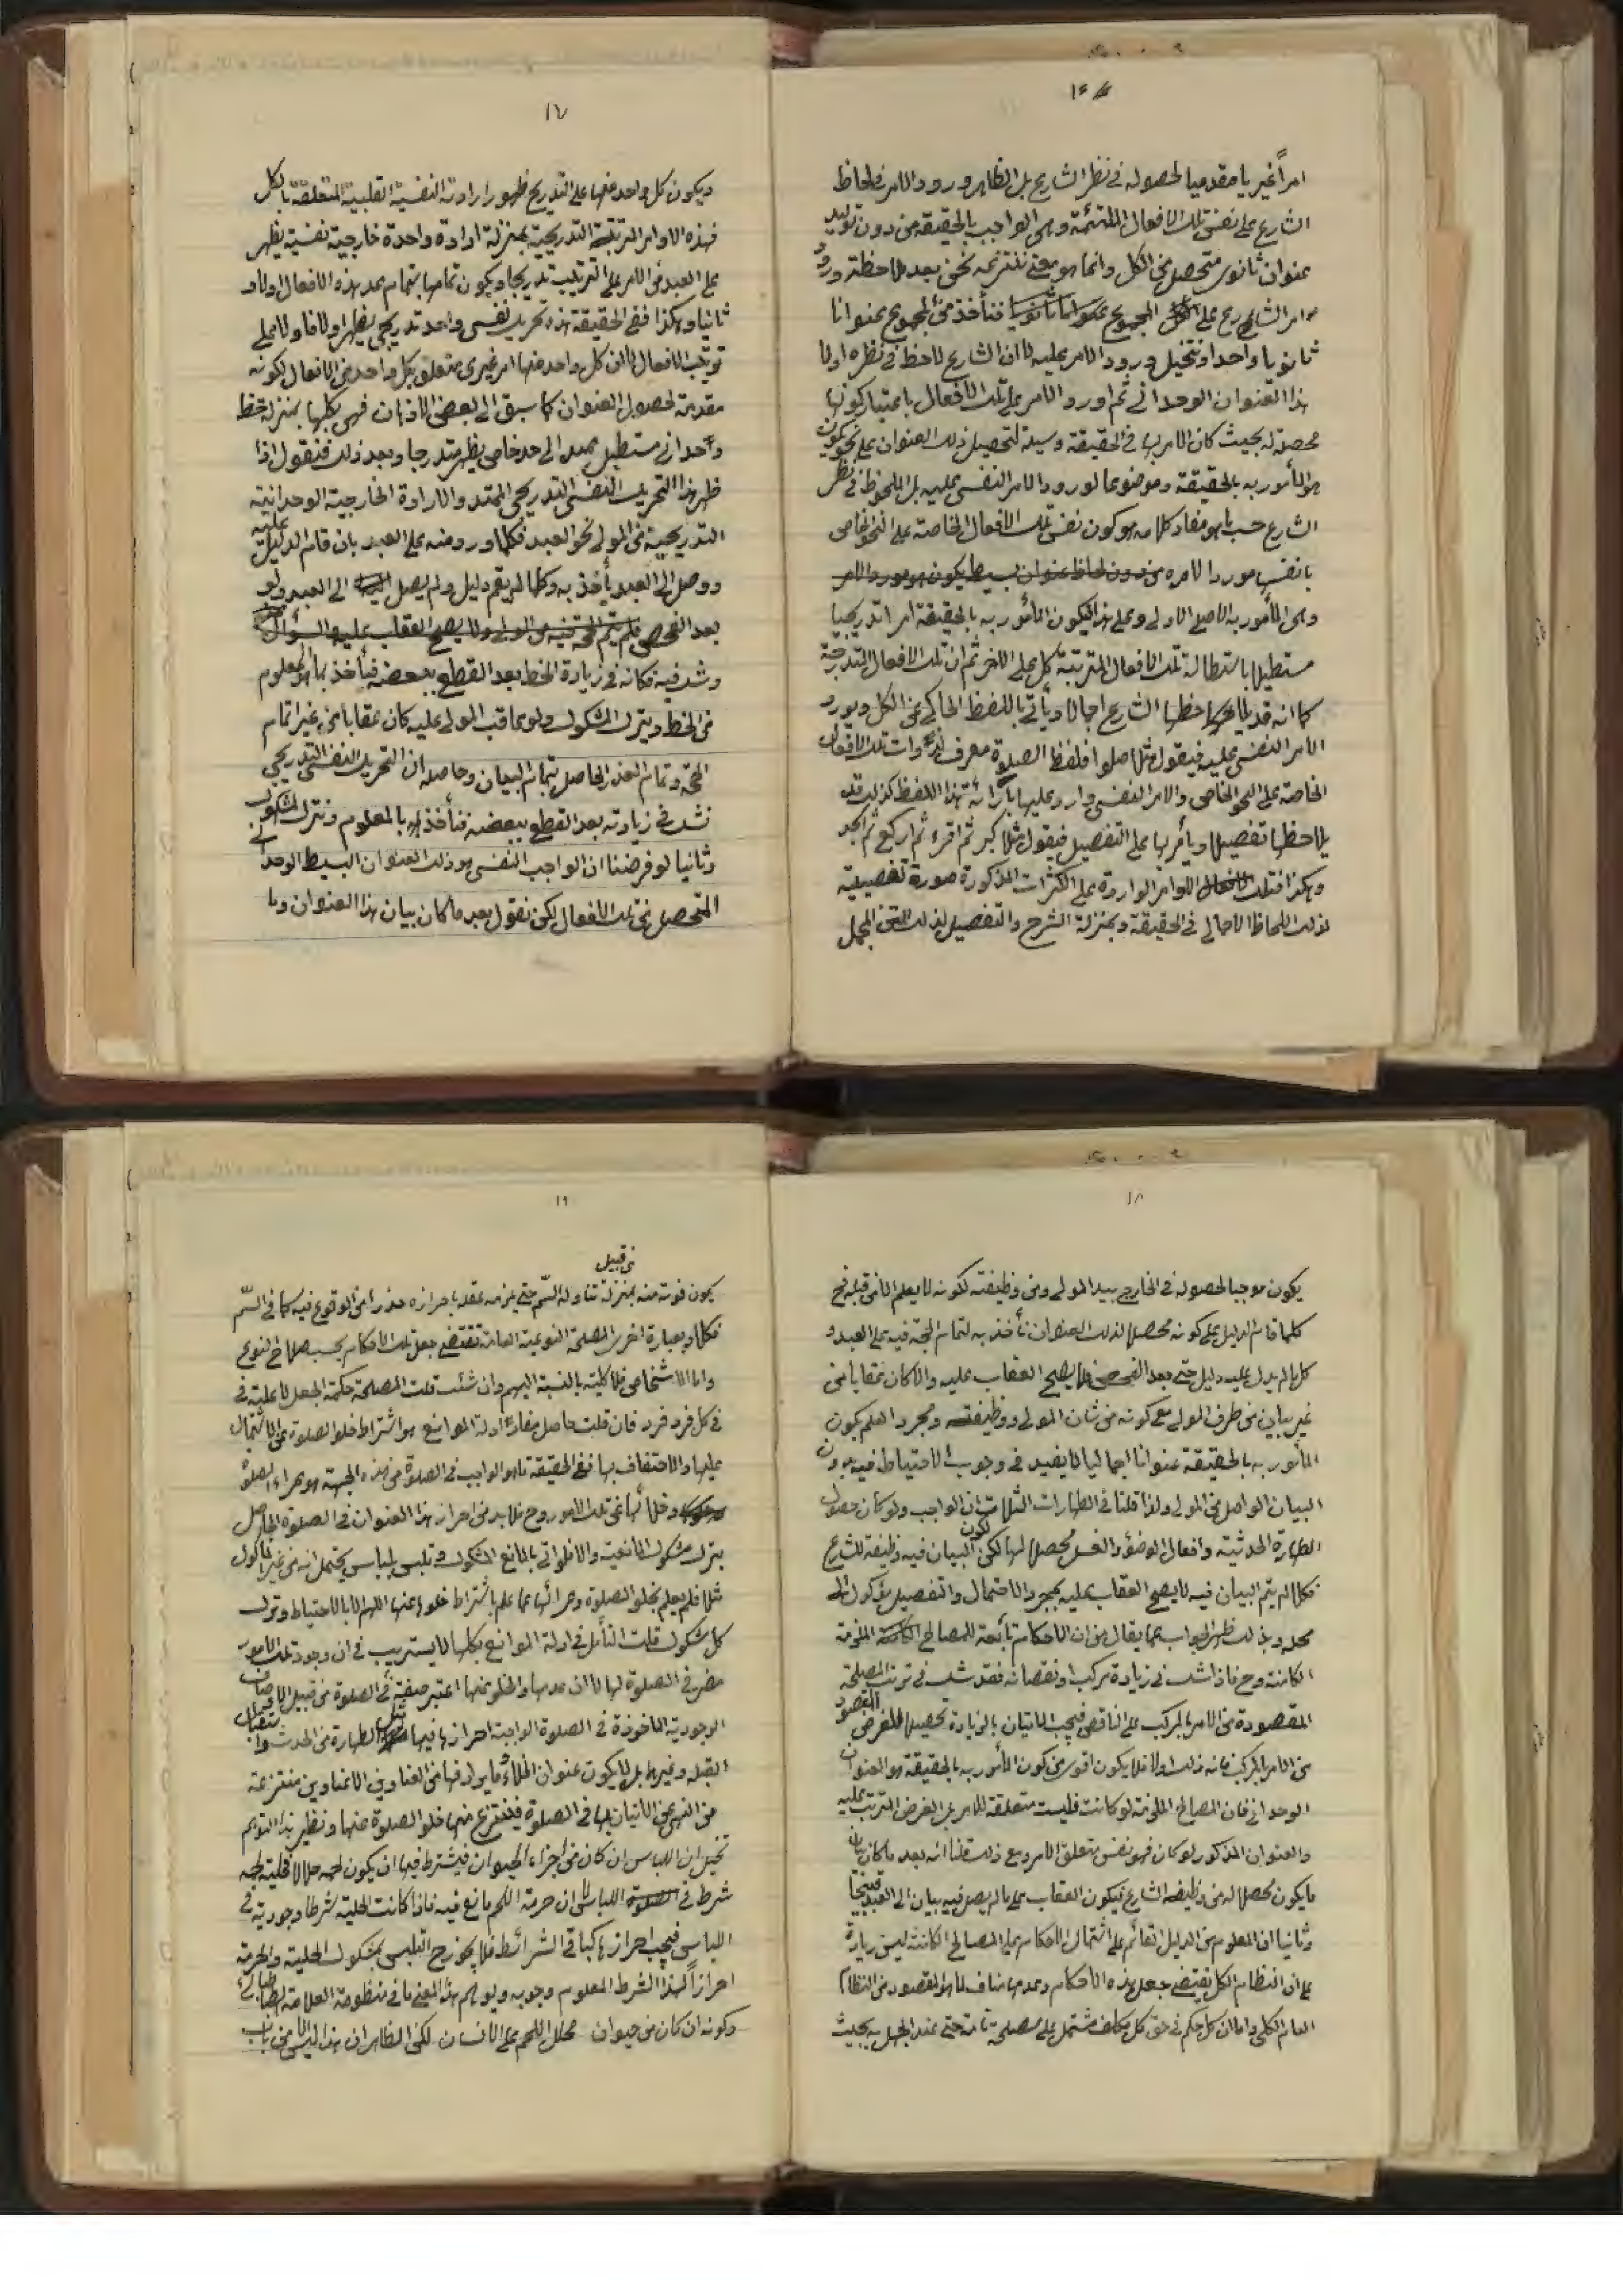 ١٦
امراً غيريا مقدميا لحصوله في نظر الشارع بل الظاهر ورود الامر ولحاظ
الشارع على نفس تلك الافعال الملتئمة وهى الواجب بالحقيقة من دون توليد
عنوان ثانوى متحصل من الكل وانما هو معنى ننتزعه نحن بعد ملاحظة ورود
امر الشارع على المجموع فنأخذ من المجموع عنوانا
ثانويا واحدا ونتخيل ورود الامر عليه لا ان الشارع لاحظ في نظره اولا
هذا العنوان الوحدانى ثم اورد الامر على تلك الافعال باعتبار كونها
محصلة له بحيث كان الامر بها في الحقيقة وسيلة لتحصيل ذلك العنوان على نحو يكون
هو المأمور به بالحقيقة وموضوعا لورود الامر النفسى عليه بل الملحوظ في نظر
الشارع حسب ما هو مفاد كلامه هو كون نفس تلك الافعال الخاصة على النحو الخاص
بانفسها مورد الامره من دون لحاظ عنوان بسيط يكون هو مورد الامر
وهى المأمور به الاصلى الاولى وعلى هذا فيكون المأمور به بالحقيقة امرا تدريجيا
مستطيلا باستطالة تلك الافعال المترتبة كل على الاخر ثم ان تلك الافعال المتدرجة
كما انه قد يلاحظها الشارع اجمالا ويأتى باللفظ الحاكى عن الكل ويورد
الامر النفسى عليه فيقول مثلا صلوا فلفظ الصلوة معرف لذوات تلك الافعال
الخاصة على النحو الخاص والامر النفسى وارد عليها بازائه هذا اللفظ كذلك قد
يلاحظها تفصيلا ويأمر بها على التفصيل فيقول مثلا كبر ثم اقرء ثم اركع ثم اسجد
وهكذا فتلك الاوامر الواردة على الكثرات المذكورة صورة تفصيلية
لذلك اللحاظ الاجمالى في الحقيقة وبمنزلة الشرح والتفصيل لذلك المتن المجمل
١٧
ويكون كل واحد منها على التدريج ظهورا لارادته النفسية القلبية المتعلقة بالكل
فهذه الاوامر المرتبة التدريجية بمنزلة ارادة واحدة خارجية نفسية يظهر
على العبد من الامر على الترتيب تدريجا ويكون تمامها بتمام عد هذه الافعال اولا و
ثانيا وهكذا ففى الحقيقة هذه تحريك نفسى واحد تدريجى يظهر اولا فاولا على
ترتب الافعال لا ان كل واحد منها امر غيرى متعلق بكل واحد من الافعال لكونه
مقدمة لحصول العنوان كما سبق الى بعض الاذهان فهى بكلها بمنزلة خط
وحدانى مستطيل يمد الى حد خاص يظهر متدرجا وبعد ذلك فنقول اذا
ظهر هذا التحريك النفسى التدريجى الممتد والارادة الخارجية الوحدانية
التدريجية من المولى نحو العبد فكلما ورد منه على العبد بان قام الدليل عليه
ووصل الى العبد يأخذ به وكلما لم يقم دليل ولم يصل الى العبد ولو
بعد الفحص فلم يتم الحجة فيه من المولى ولا يصح العقاب عليه
وشك فيه فكانه في زيادة الخط بعد القطع ببعضه فيأخذ بما هو المعلوم
من الخط ويترك المشكوك ولو عاقب المولى عليه كان عقابا من غير اتمام
الحجة وتمام العذر الحاصل بتمام البيان وحاصله ان التحريك النفسى التدريجى
نشك في زيادته بعد القطع ببعضه فنأخذ بالمعلوم ونترك المشكوك
وثانيا لو فرضنا ان الواجب النفسى هو ذلك العنوان البسيط الوحدانى
المتحصل من تلك الافعال لكن نقول بعد ما كان بيان هذا العنوان وما
١٨
يكون موجبا لحصوله في الخارج بيد المولى ومن وظيفته لكونه لا يعلم الا من قبله فح
كلما قام الدليل على كونه محصلا لذلك العنوان نأخذ به لتمام الحجة فيه على العبد و
كل ما لم يدل عليه دليل حتى بعد الفحص فلا يصح العقاب عليه والا كان عقابا من
غير بيان من طرف المولى مع كونه من شان المولى ووظيفته ومجرد العلم بكون
المأمور به بالحقيقة عنوانا اجماليا لا يفيد في وجوب الاحتياط فيه بدون
البيان الواصل من المولى ولذا قلنا في الطهارات الثلاث ان الواجب ولو كان حصول
الطهارة الحدثية وافعال الوضوء والغسل محصلا لها لكن لكون البيان فيه وظيفة للشارع
فكلما لم يتم البيان فيه لا يصح العقاب عليه بمجرد الاحتمال والتفصيل موكول الى
محله وبذلك ظهر الجواب عما يقال من ان الاحكام تابعة للمصالح الملزمة
الكامنة وح فاذا شك في زيادة مركب او نقصانه فقد شك في ترتب المصلحة
المقصودة من الامر بالمركب على الناقص فيجب الاتيان بالزيادة تحصيلا للغرض المقصود
من الامر بالمركب فانه ذلك اولا فلا يكون اقوى من كون المأمور به بالحقيقة هو العنوان
الوحدانى فان المصالح الملزمة لو كانت فليست متعلقة للامر بل الغرض المترتب عليه
والعنوان المذكور لو كان فهو نفس متعلق الامر ومع ذلك قلنا انه بعد ما كان بيان
ما يكون محصلا له من وظيفة الشارع فيكون العقاب على ما لم يصل فيه بيان الى العبد قبيحا
وثانيا ان المعلوم من الدليل القائم على اشتمال الاحكام على المصالح الكامنة ليس زيادة
على ان النظام الكل يقتضى جعل هذه الاحكام وعدمها مناف لما هو المقصود من النظام
العام الكلى واما ان كل حكم في حق كل مكلف مشتمل على مصلحة تامة حتى عند الجهل به بحيث
١٩
من قبيل
يكون فوته منه بمنزلة تناوله السّم حتى يلزمه عقله باحرازه حذرا من الوقوع فيه كما في السّم
فكلا وبعبارة اخرى المصلحة النوعية العامة تقتضى جعل تلك الاحكام بحسب صلاح النوع
واما الاشخاص فلا كلية بالنسبة اليهم وان شئت قلت المصلحة حكمة الجعل لا علية في
في كل فرد فرد فان قلت حاصل مفاد ادلة الموانع هو اشتراط خلو الصلوة عن الاشتمال
عليها والاحتفاف بها ففى الحقيقة ما هو الواجب في الصلوة من هذه الجهة هو عراء الصلوة
وخلائها عن تلك الامور وح فلا بد من احراز هذا العنوان في الصلوة الحاصل
بترك مشكوك المانعية والا فلو اتى بالمانع المشكوك وتلبس بلباس يحتمل انه من غير المأكول
مثلا فلم يعلم بخلو الصلوة وعرائها عما علم باشتراط خلوها عنها اللهم الا بالاحتياط وترك
كل مشكوك قلت التأمل في ادلة الموانع بكلها لا يستريب في ان وجود تلك الامور
مضر في الصلوة لها لا ان عدمها والخلو عنها اعتبر صفة في الصلوة من قبيل الاوصاف
الوجودية المأخوذة في الصلوة الواجبة احرازها فيها مثل الطهارة من الحدث واستقبال
القبلة وغيرها بل لا يكون عنوان الخلاء وما يرادفها من العناوين الا عناوين منتزعة
من النهى عن الاتيان بها في الصلوة فينتزع منها خلو الصلوة عنها ونظير هذا التوهم
تخيل ان اللباس ان كان من اجزاء الحيوان فيشترط فيها ان يكون لحمه حلالا فحلية لحمه
شرط في اللباس لا ان حرمة اللحم مانع فيه فاذا كانت الحلية شرطا وجوديته في
اللباس فيجب احرازها كباقى الشرائط فلا يجوز ح التلبس بمشكوك الحلية والحرمة
احرازاً لهذا الشرط المعلوم وجوبه ويوهم هذا المعنى ما في منظومة العلامة الطباطبائى
وكونه ان كان من حيوان محلل اللحم على الانسان لكن الظاهر ان هذا ليس الا من باب